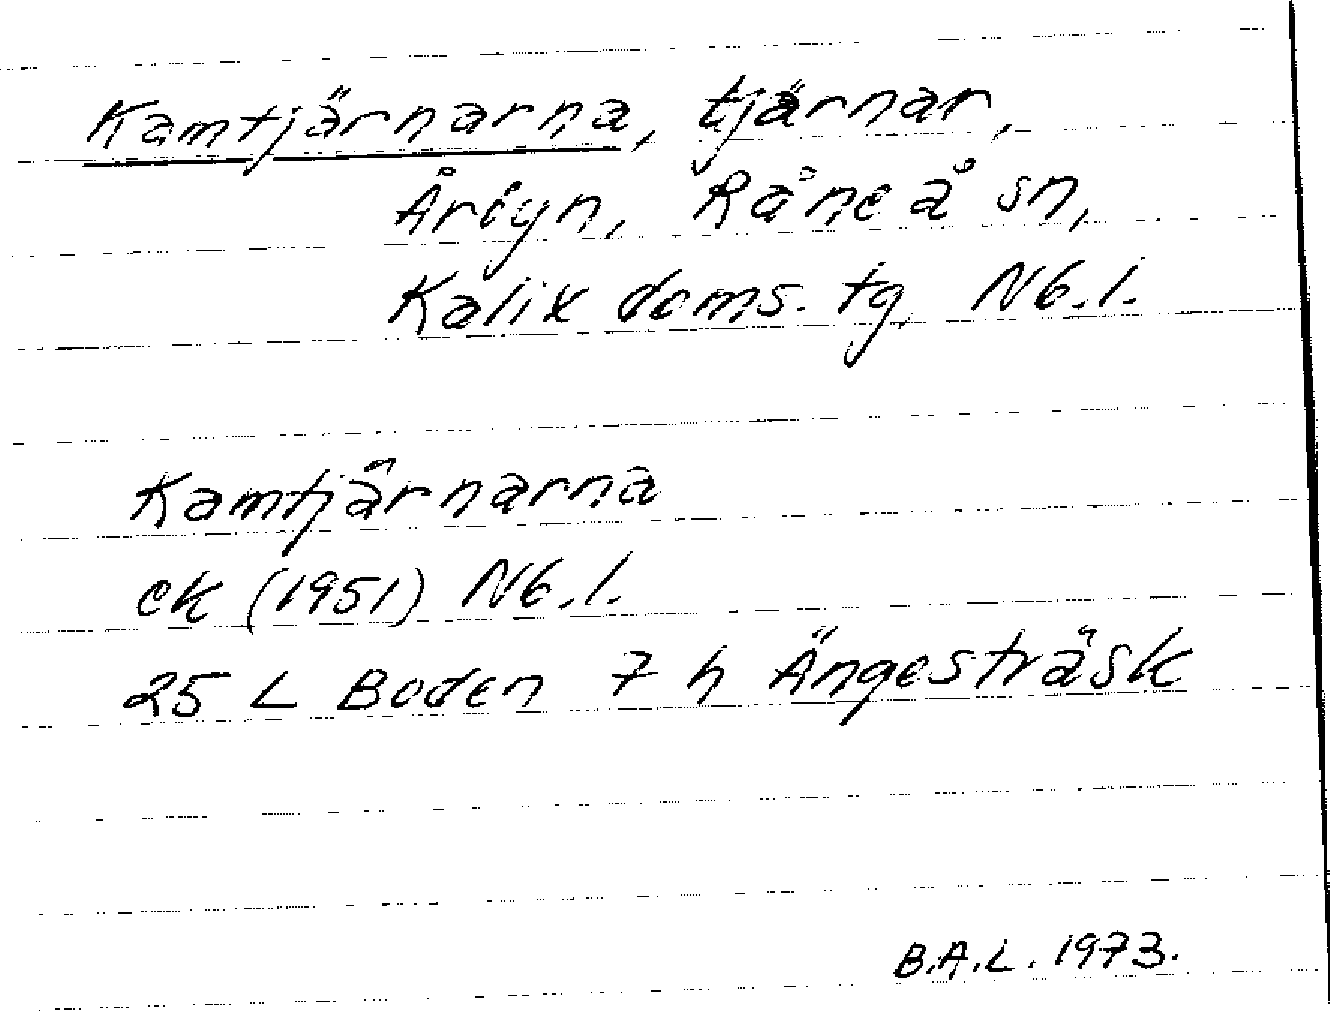 Kamtjärnarna, tjärnar,
Årbyn, Råneå sn,
Kalix doms. tg, Nb.l.
Kamtjärnarna
ek (1951) Nb.l.
25 L Boden 7 h Ängesträsk
B.A.L. 1973.